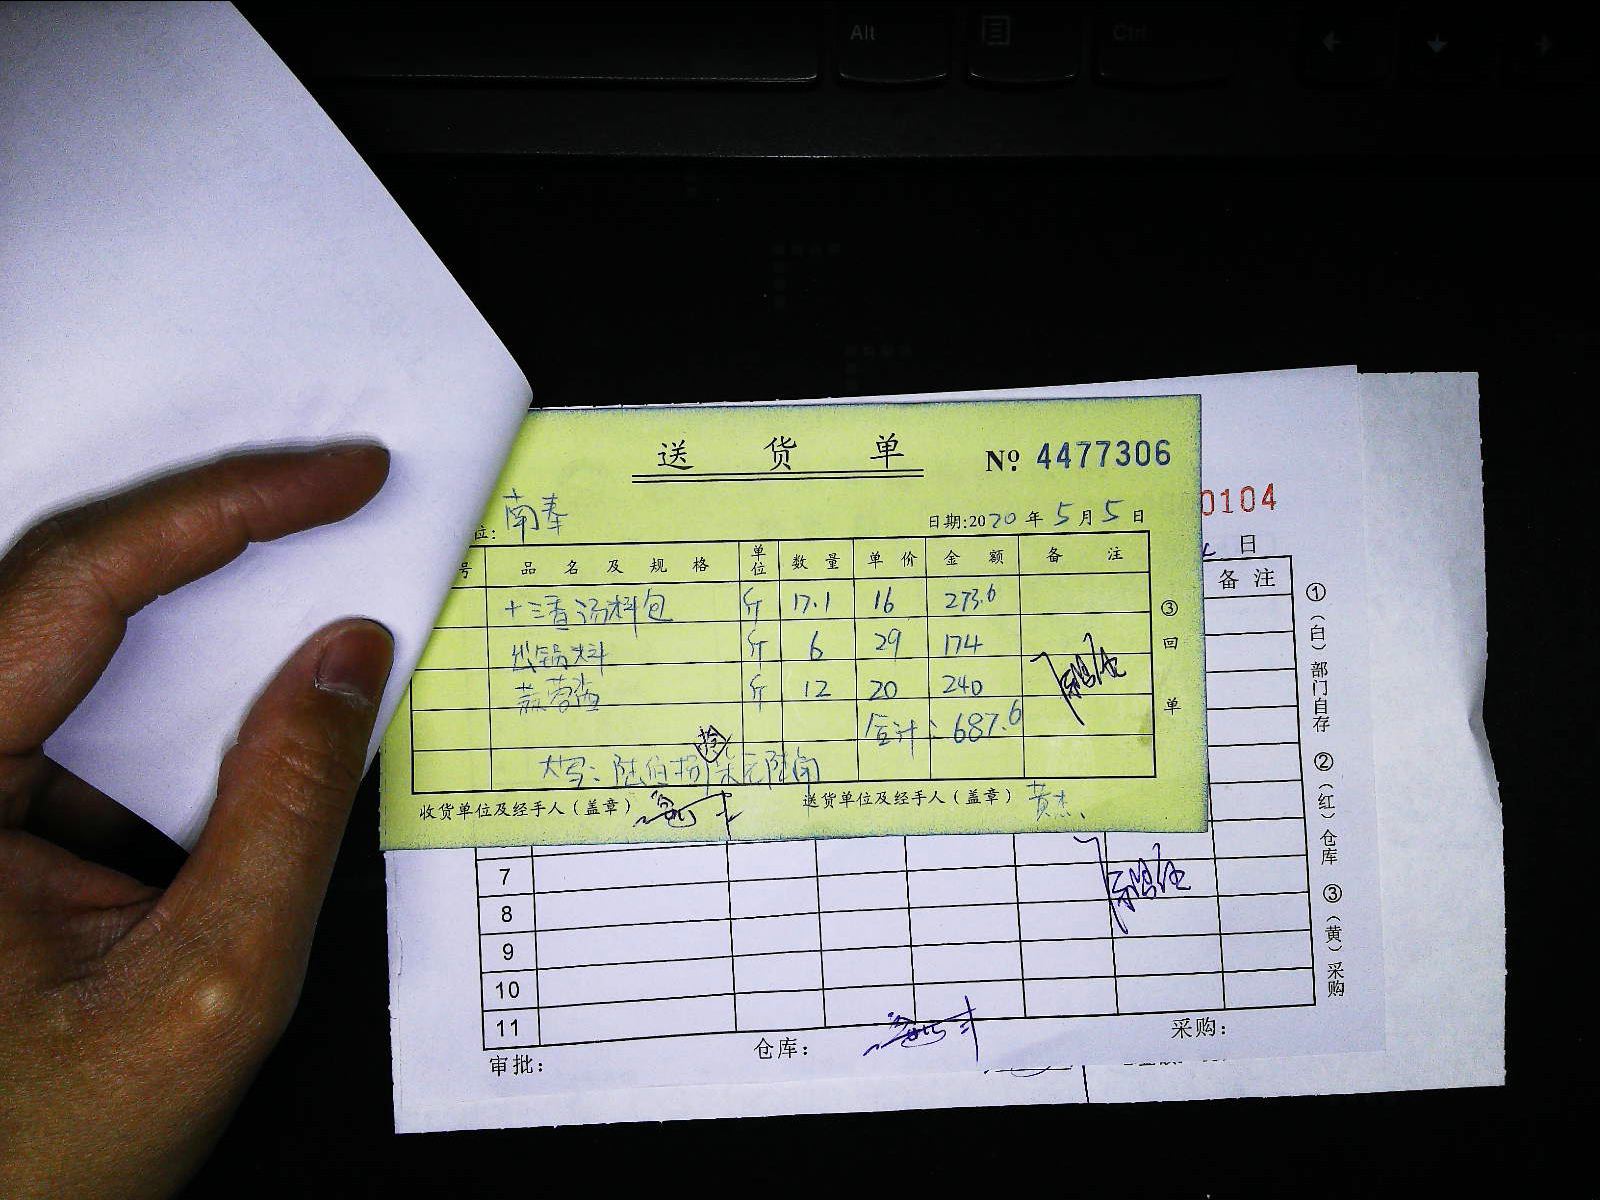 Alt
Ctrl
送货单
№ 4477306
0104
位: 南奉
日期:2020年5月5日
日
号 品名及规格 单位 数量 单价 金额 备注
备注
十三香汤料包 斤 17.1 16 273.6
锅料 斤 6 29 174
蒜蓉 斤 12 20 240
合计: 687.6
大写: 陆佰捌拾柒元陆角
③回单
收货单位及经手人(盖章)
送货单位及经手人(盖章) 黄杰
①(白)部门自存 ②(红)仓库 ③(黄)采购
7
8
9
10
11
审批:
仓库:
采购: